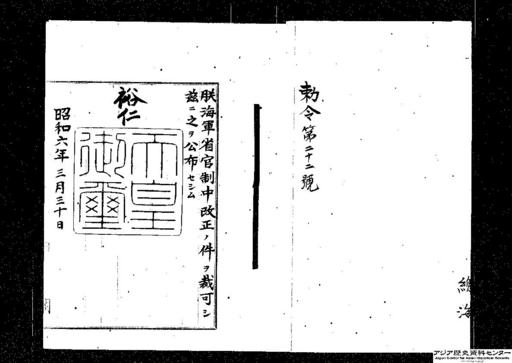 勅令第二十二號
總海
朕海軍省官制中改正ノ件ヲ裁可シ
茲ニ之ヲ公布セシム
裕仁
天皇
御璽
昭和六年三月三十日
アジア歴史資料センター
Japan Center for Asian Historical Records